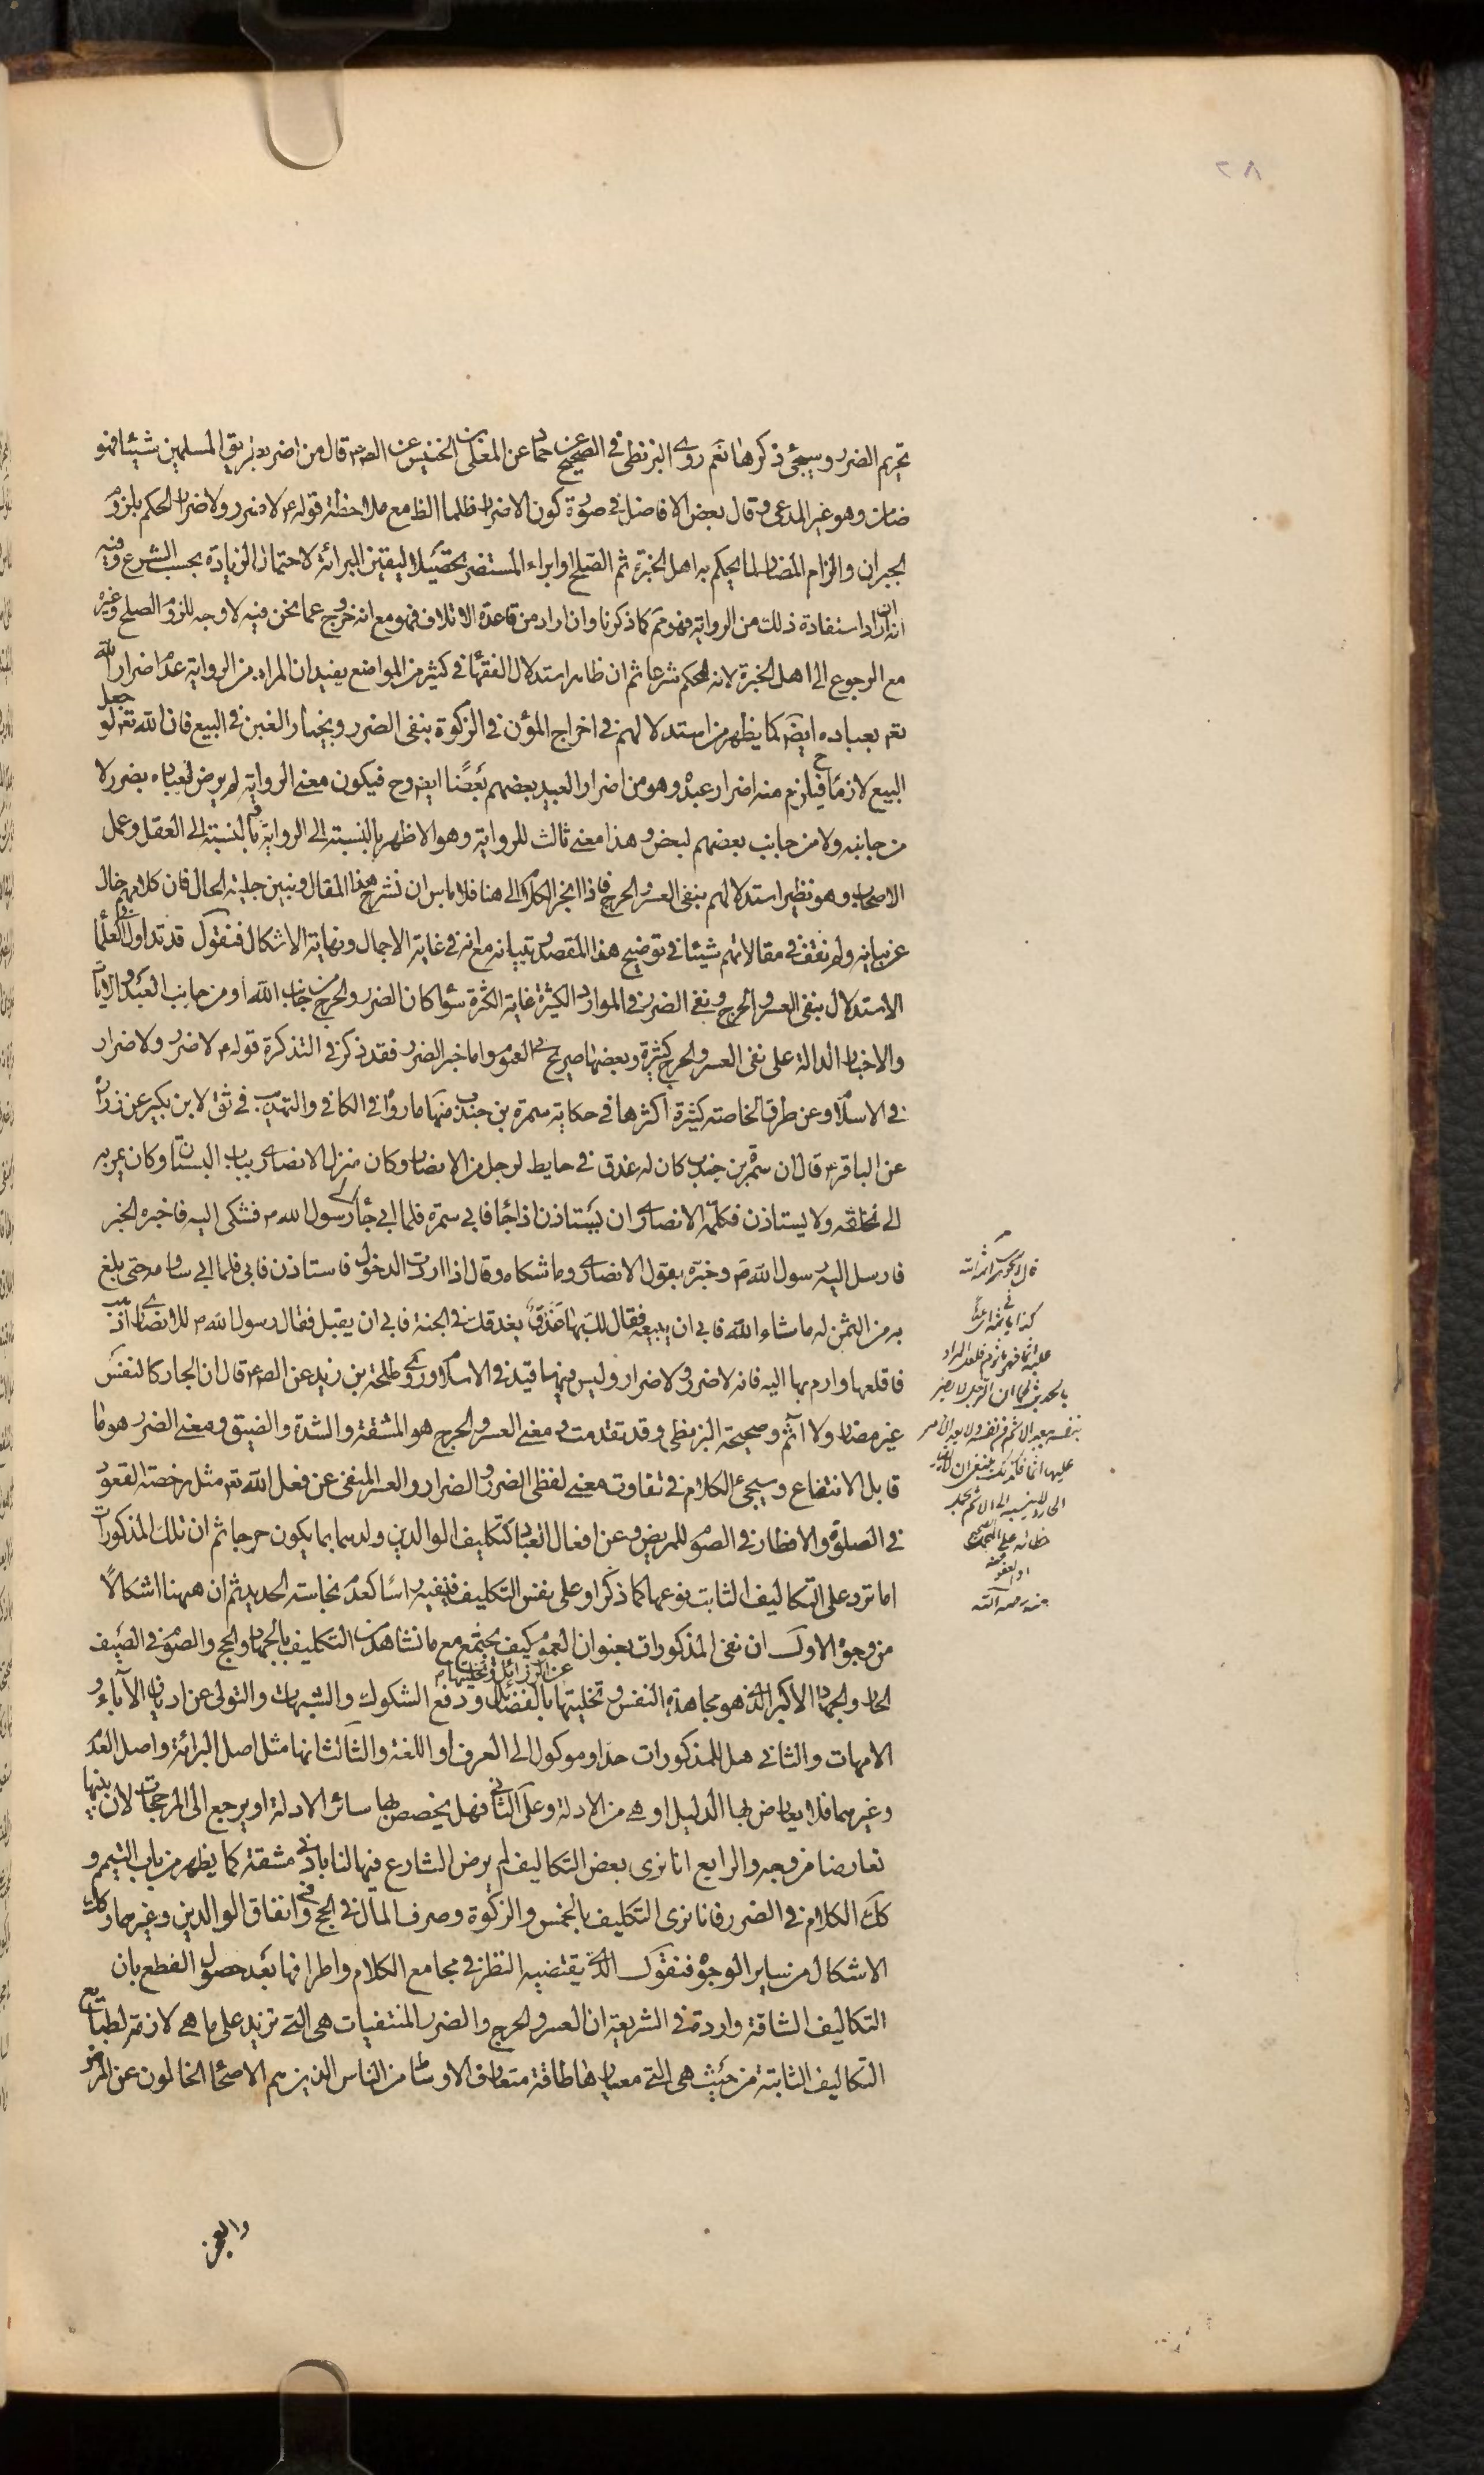 تحريم الضرر وسيجئ ذكرها نعم روى البزنطى فى الصحيح عن حماد عن المعلى بن الخنيس عن الصم قال من اضر بطريق المسلمين شيئا فهو
ضامن وهو غير المدعى وقال بعض الافاضل فى صورة كون الاضرار ظلما الظ مع ملاحظة قوله ع لا ضرر ولا ضرار الحكم بلزوم
الجبران والزام المضار لما يحكم به اهل الخبرة ثم الصلح او ابراء المستضر تحصيلا ليقين البرائة لاحتمال الزيادة بحسب الشرع وفيه
انه ان اراد استفادة ذلك من الرواية فهو مم كما ذكرنا وان اراد من قاعدة الاتلاف فهو مع انه خروج عما نحن فيه لا وجه للزوم الصلح وغيره
مع الرجوع الى اهل الخبرة لانه الحكم شرعا ثم ان ظاهر استدلال الفقهاء فى كثير من المواضع يفيد ان المراد من الرواية عدم اضرار الله
تعم بعباده ايضم كما يظهر من استدلالهم فى اخراج المؤن فى الزكوة بنفى الضرر وبخيار الغبن فى البيع فان الله تعم لو جعل
البيع لازما فيلزم ح منه اضرار عبده وهو من اضرار العبيد بعضهم بعضا ايضم وح فيكون معنى الرواية لم يرض لعباده بضرر لا
من جانبه ولا من جانب بعضهم لبعض وهذا معنى ثالث للرواية وهو الاظهر بالنسبة الى الرواية ثم بالنسبة الى العقل وعمل
الاصحاب وهو نظير استدلالهم بنفى العسر والحرج فاذا انجر الكلام الى هنا فلا باس ان نشرح هذا المقال ونبين جلية الحال فان كلامهم خال
عن بيانه ولم نقف فى مقالاتهم شيئا فى توضيح هذا المقصد وتبيانه مع انه فى غاية الاجمال ونهاية الاشكال فنقول قد تداول العلماء
الاستدلال بنفى العسر والحرج ونفى الضرر فى الموارد الكثيرة غاية الكثرة سواء كان الضرر والحرج من جانب الله او من جانب العبد والايات
والاخبار الدالة على نفى العسر والحرج كثيرة وبعضها صريح فى العموم واما خبر الضرر فقد ذكر فى التذكرة قوله م لا ضرر ولا ضرار
فى الاسلام وعن طرق الخاصة كثيرة اكثرها فى حكاية سمرة بن جندب منها ما رواه فى الكافى والتهذيب فى ثق لابن بكير عن زرارة
عن الباقر ع قال ان سمرة بن جندب كان له عذق فى حايط لرجل من الانصار وكان منزل الانصارى بباب البستان وكان يمر به
الى نخلته ولا يستاذن فكلمه الانصارى ان يستاذن اذا جاء فابى سمرة فلما ابى جاء الى رسول الله م فشكى اليه فاخبره الخبر
فارسل اليه رسول الله م وخبره بقول الانصارى وما شكاه وقال اذا اردت الدخول فاستاذن فابى فلما ابى ساومه حتى بلغ
به من الثمن له ما شاء الله فابى ان يبيعه فقال لك بها عذق بعذقك فى الجنة فابى ان يقبل فقال رسول الله م للانصارى اذهب
فاقلعها وارم بها اليه فانه لا ضرر ولا ضرار وليس فيهما قيد فى الاسلام وروى طلحة بن زيد عن الصم قال ان الجار كالنفس
غير مضار ولا آثم وصحيحة البزنطى وقد تقدمت ومعنى العسر والحرج هو المشقة والشدة والضيق ومعنى الضرر هو ما
قابل الانتفاع وسيجئ الكلام فى تفاوت معنى لفظى الضرر والضرار والعسر المنفى عن فعل الله تعم مثل رخصة القعود
فى الصلوة والافطار فى الصوم للمريض وعن افعال العباد كتكليف الوالدين ولدهما بما يكون حرجا ثم ان تلك المذكورات
اما ترد على التكاليف الثابت نوعها كما ذكر او على نفس التكليف فينفيه راسا كعدم نجاسة الحديد ثم ان ههنا اشكالا
من وجوه الاول ان نفى المذكورات بعنوان العموم كيف يجتمع مع ما نشاهد من التكليف بالجهاد والحج والصوم فى الصيف
الحار والجهاد الاكبر الذى هو مجاهدة النفس وتخليتها عن الرذائل وتحليتها بالفضائل ودفع الشكوك والشبهات والتولى عن اديان الآباء و
الامهات والثانى هل للمذكورات حد او موكول الى العرف او اللغة والثالث انها مثل اصل البرائة واصل العدم
وغيرهما فلا يعارض بها الدليل او هى من الادلة وعلى الثانى فهل يخصص بها سائر الادلة او يرجع الى المرجحات لان بينها
تعارضا من وجه والرابع انا نرى بعض التكاليف لم يرض الشارع فيها لنا بادنى مشقة كما يظهر من باب التيمم و
كك الكلام فى الضرر فانا نرى التكليف بالخمس والزكوة وصرف المال فى الحج وفى انفاق الوالدين وغيرهما وكك
الاشكال من ساير الوجوه فنقول الذى يقتضيه النظر فى مجامع الكلام واطرافها بعد حصول القطع بان
التكاليف الشاقة واردة فى الشريعة ان العسر والحرج والضرر المنتفيات هى التى تزيد على ما هى لازمة لطبايع
التكاليف الثابتة من حيث هى التى معيارها طاقة متعارف الاوساط من الناس الذين هم الاصحاء الخالون عن المرض
والعجز